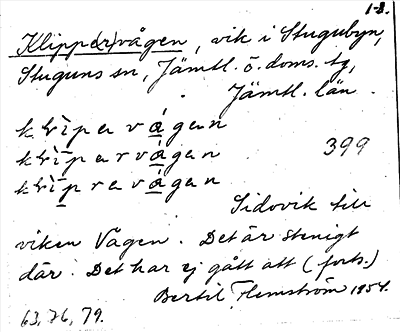 1-2.
Klipp(er)vågen, vik i Stugubyn,
Stuguns sn, Jämtl. ö. doms. tg,
Jämtl. län.
399
Sidovik till
viken Vågen. Det är stenigt
där. Det har ej gått att (forts.)
Bertil Flemström 1954.
63, 76, 79.